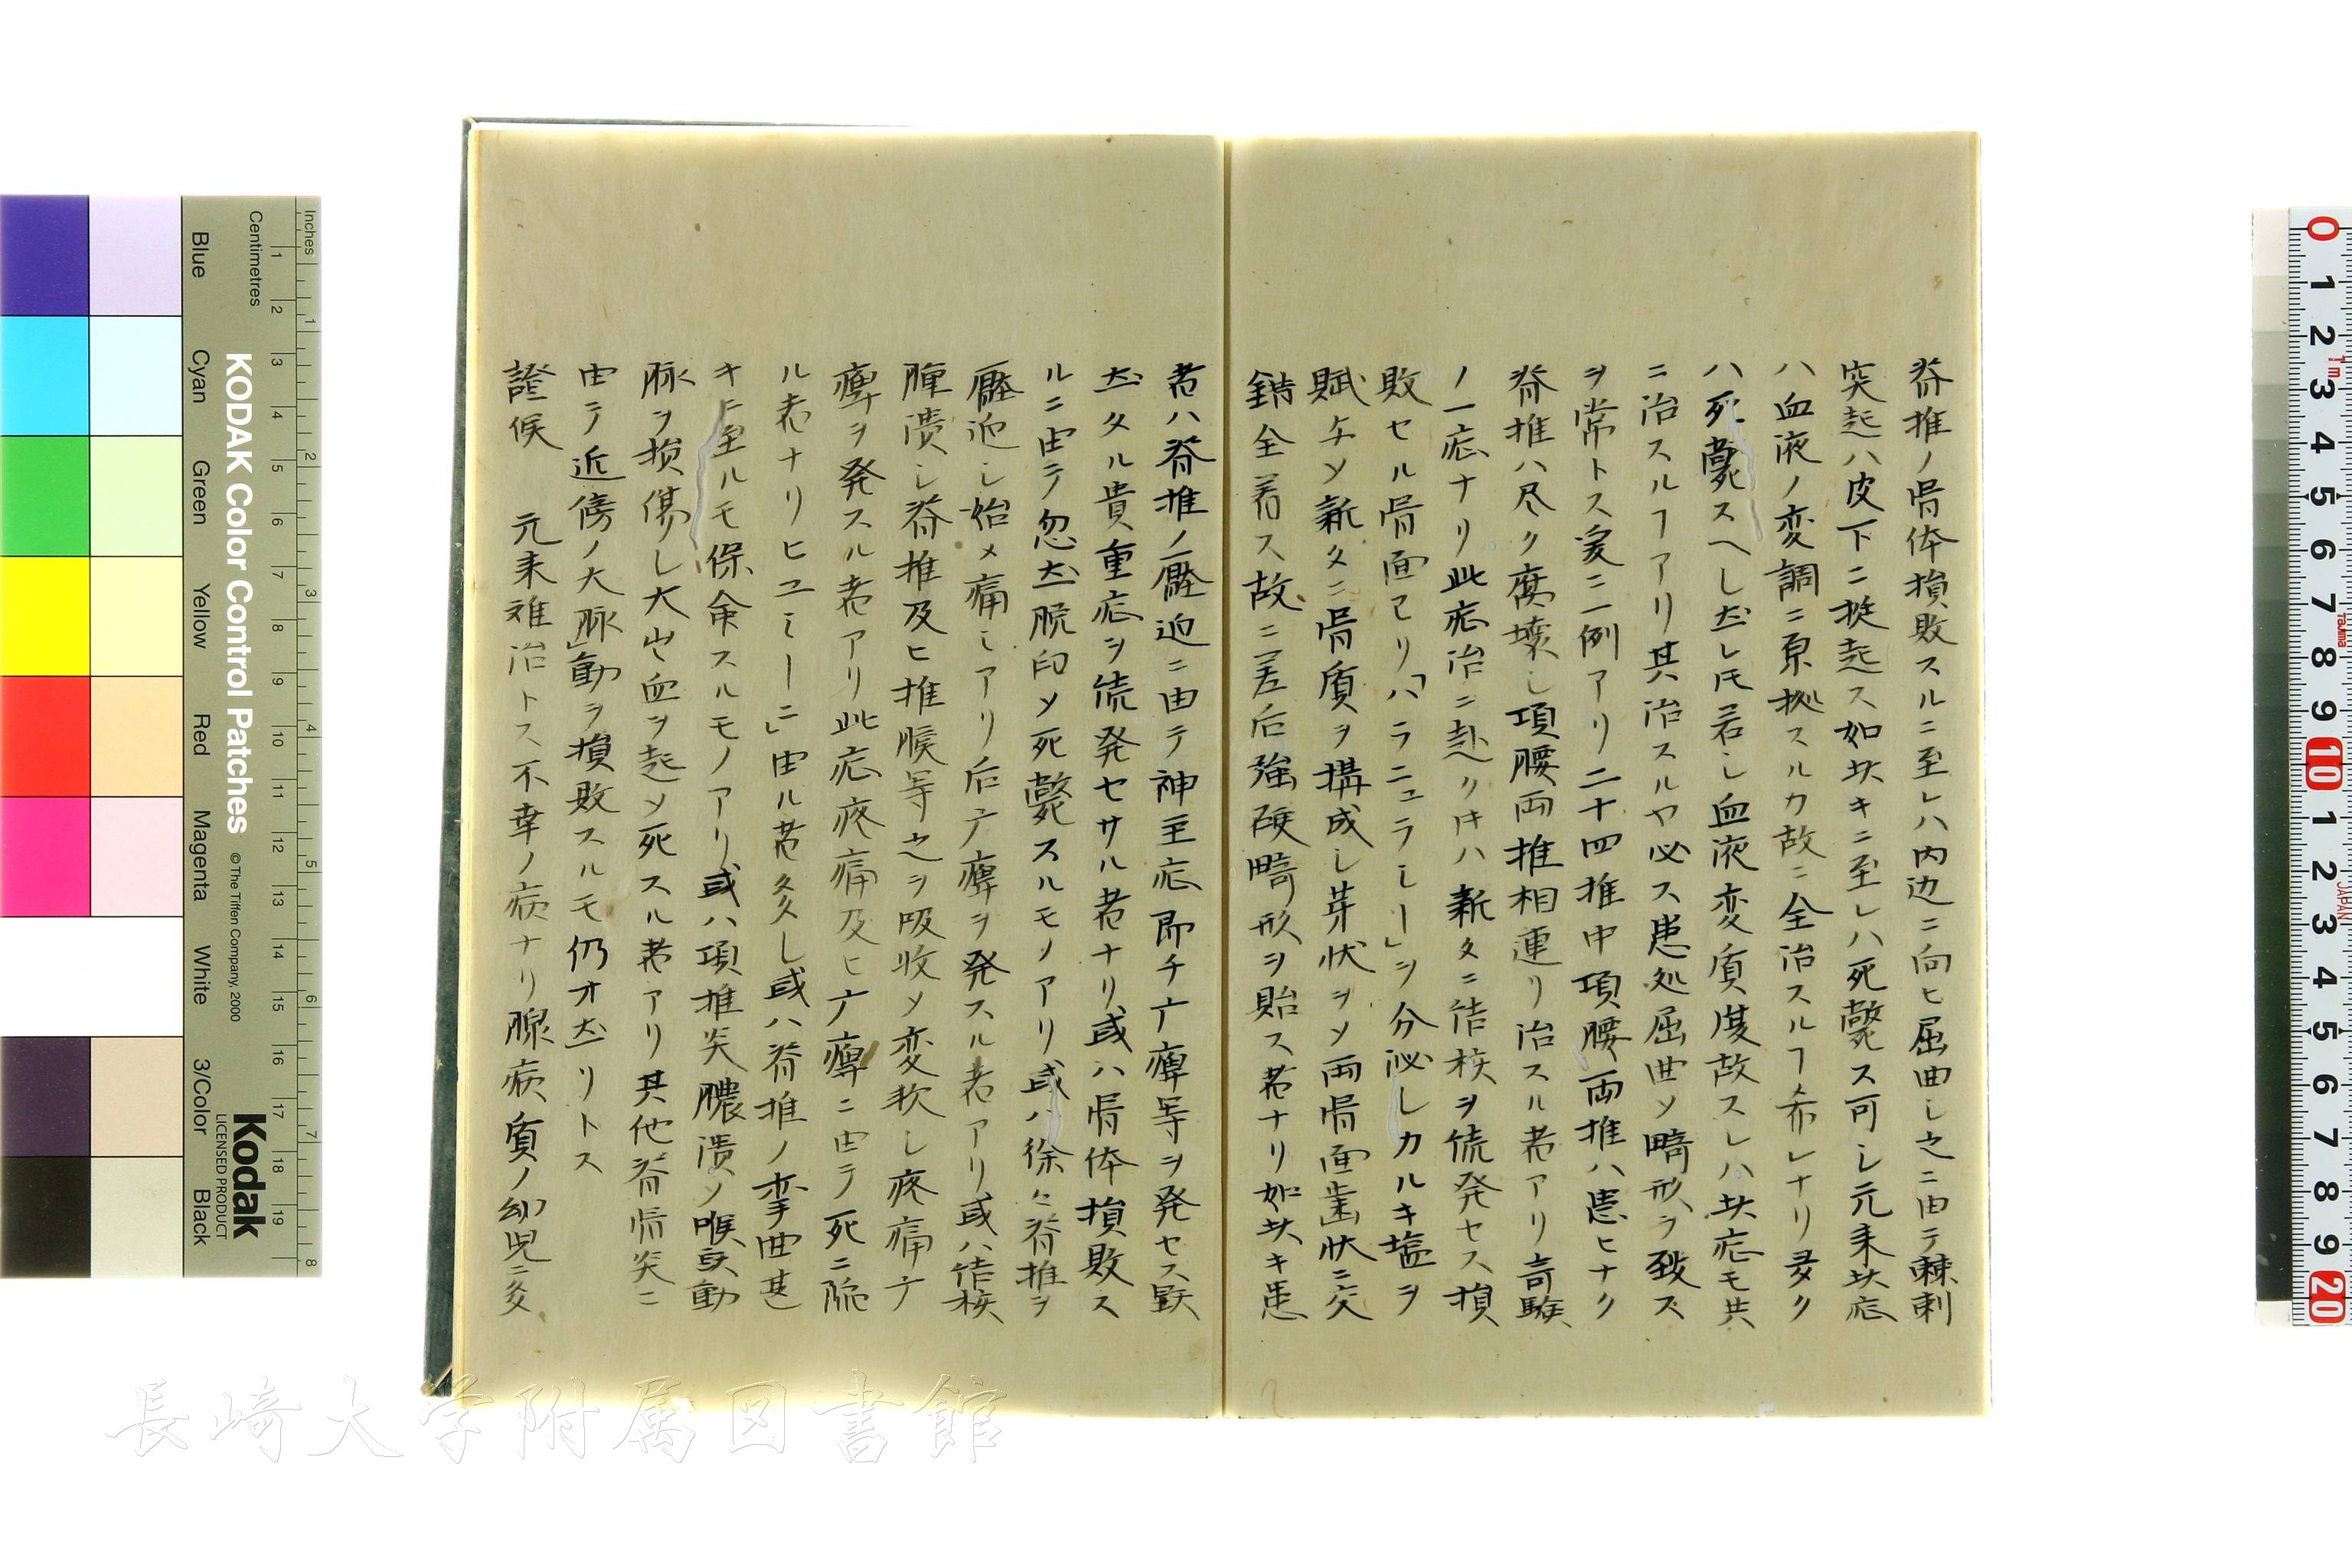 脊推ノ骨体損敗スルニ至レハ内辺ニ向ヒ屈曲シ之ニ由テ棘刺
突起ハ皮下ニ挺起ス如此キニ至レハ死斃ス可シ元来此症
ハ血液ノ変調ニ原拠スルカ故ニ全治スルヿ希レナリ多ク
ハ死斃スヘシ然レ𪜈若シ血液変質復故スレハ此症モ共
ニ治スルヿアリ其治スルヤ必ス患処屈曲ソ畸形ヲ致ス
ヲ常トス爰ニ一例アリ二十四推中項腰両推ハ恙ヒナク
脊推ハ尽ク腐壊シ項腰両推相連リ治スル者アリ奇験
ノ一症ナリ此症治ニ赴ク𪜈ハ新タニ結核ヲ続発セス損
敗セル骨面ヨリ「ハラニュラシー」ヲ分泌シカルキ塩ヲ
賦与ソ新タニ骨質ヲ搆成シ芽状ヲソ両骨面歯状ニ交
錯全着ス故ニ差后強硬畸形ヲ貽ス者ナリ如此キ患
者ハ脊推ノ壓迫ニ由テ神圣症即チ亣痺等ヲ発セス默
然タル貴重症ヲ続発セサル者ナリ或ハ骨体損敗ス
ルニ由テ忽然脱臼ソ死斃スルモノアリ或ハ徐々脊推ヲ
壓迫シ始メ痛ミアリ后亣痺ヲ発スル者アリ或ハ結核
膿潰シ脊推及ヒ推候等之ヲ吸收メ変軟シ疼痛亣
痺ヲ発スル者アリ此症疼痛及ヒ亣痺ニ由テ死ニ陥
ル者ナリヒユミーニ」由ル者多シ或ハ脊推ノ攣曲甚
キニ至ルモ保命スルモノアリ或ハ項推炎膿潰ソ喉頭動
脉ヲ損傷シ大出血ヲ起ソ死スル者アリ其他脊椎炎ニ
由テ近傍ノ大脉」動ヲ損敗スルモ仍オ然リトス
證候　元来難治トス不幸ノ病ナリ腺病質ノ幼児ニ多
KODAK Color Control Patches © The Tiffen Company, 2000
Kodak
LICENSED PRODUCT
Inches
Centimetres
Blue
Cyan
Green
Yellow
Red
Magenta
White
3/Color
Black
長崎大学附属図書館